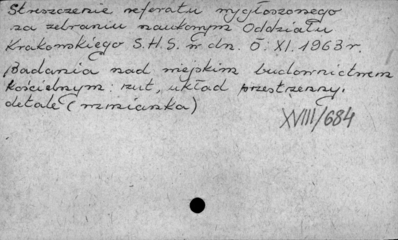 Streszczenie referatu wygłoszonego
na zebraniu naukowym Oddziału
Krakowskiego S.H.S. w dn. 5. XI. 1963 r.
Badania nad wiejskim budownictwem
kościelnym: rzut, układ przestrzenny.
detale (wzmianka)
XVIII/684